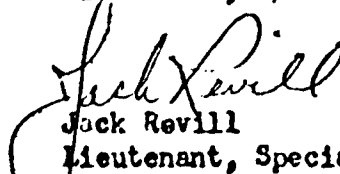 Jack Revill
Jack Revill
Lieutenant, Specia